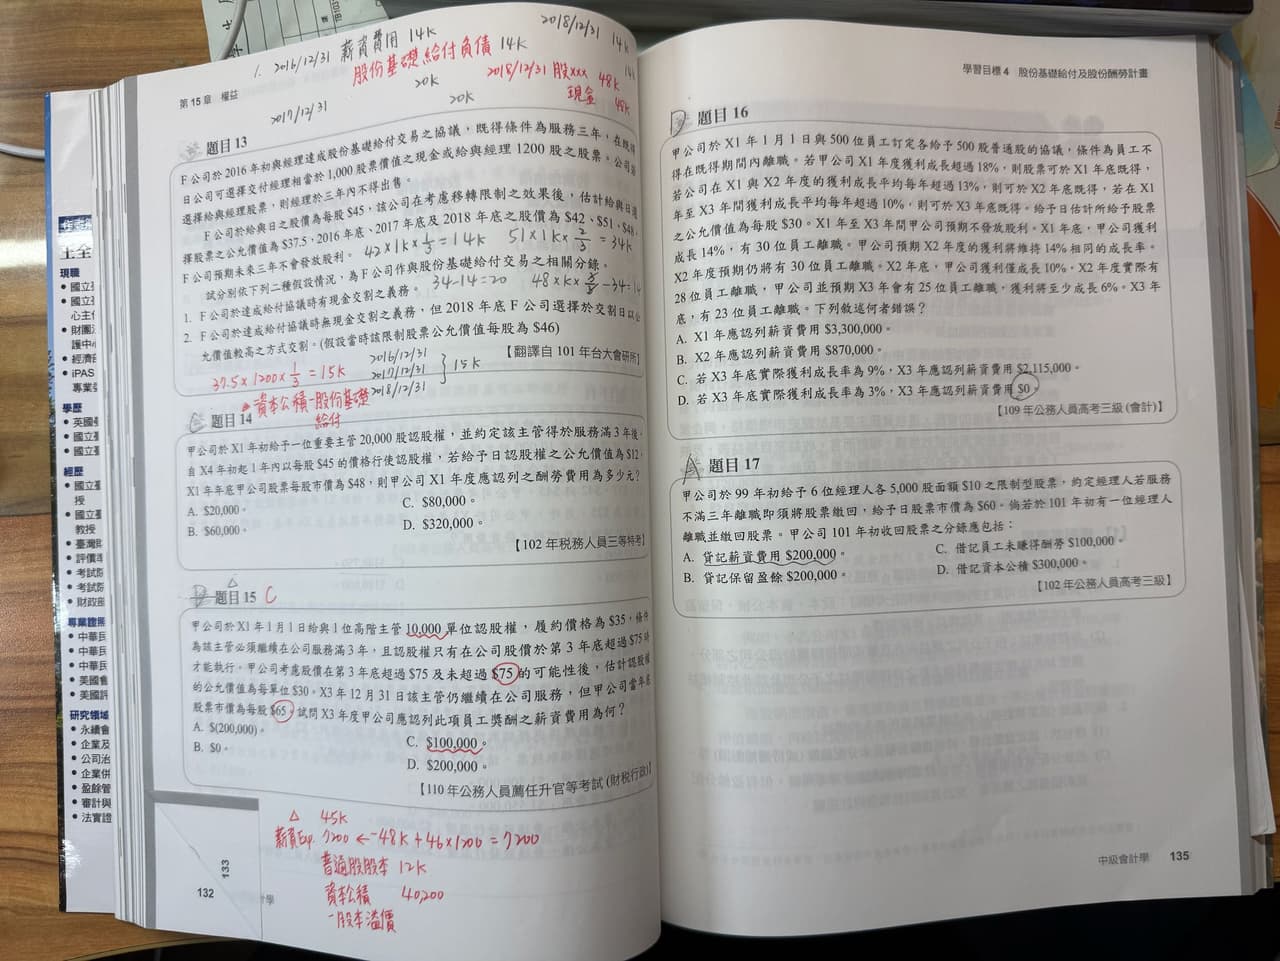 1. 2016/12/31 薪資費用 14K
股份基礎給付負債 14K
2018/12/31 14K
2018/12/31 股xxx 48K
現金 48K
2017/12/31 20K
20K
第 15 章 權益
題目 13
F 公司於 2016 年初與經理達成股份基礎給付交易之協議,既得條件為服務三年,在既得
日公司可選擇交付經理相當於 1,000 股票價值之現金或給與經理 1200 股之股票。公司若
選擇給與經理股票,則經理於三年內不得出售。
F 公司於給與日之股價為每股 $45,該公司在考慮移轉限制之效果後,估計給與日選
擇股票之公允價值為 $37.5,2016 年底、2017 年底及 2018 年底之股價為 $42、$51、$48,
F 公司預期未來三年不會發放股利。
42×1K×1/3=14K 51×1K×2/3=34K
試分別依下列二種假設情況,為 F 公司作與股份基礎給付交易之相關分錄。
34-14=20
1. F 公司於達成給付協議時有現金交割之義務。
2. F 公司於達成給付協議時無現金交割之義務,但 2018 年底 F 公司選擇於交割日以公
允價值較高之方式交割。(假設當時該限制股票公允價值每股為 $46)
【翻譯自 101 年台大會研所】
37.5×1200×1/3=15K
2016/12/31
2017/12/31
2018/12/31
15K
資本公積-股份基礎
給付
C
題目 14
甲公司於 X1 年初給予一位重要主管 20,000 股認股權,並約定該主管得於服務滿 3 年後,
自 X4 年初起 1 年內以每股 $45 的價格行使認股權,若給予日認股權之公允價值為 $12,
X1 年年底甲公司股票每股市價為 $48,則甲公司 X1 年度應認列之酬勞費用為多少元?
A. $20,000。
B. $60,000。
C. $80,000。
D. $320,000。
【102 年稅務人員三等特考】
題目 15 C
甲公司於 X1 年 1 月 1 日給與 1 位高階主管 10,000 單位認股權,履約價格為 $35,條件
為該主管必須繼續在公司服務滿 3 年,且認股權只有在公司股價於第 3 年底超過 $75 時
才能執行。甲公司考慮股價在第 3 年底超過 $75 及未超過 $75 的可能性後,估計認股權
的公允價值為每單位 $30。X3 年 12 月 31 日該主管仍繼續在公司服務,但甲公司當年底
股票市價為每股 $65。試問 X3 年度甲公司應認列此項員工獎酬之薪資費用為何?
A. $(200,000)。
B. $0。
C. $100,000。
D. $200,000。
【110 年公務人員薦任升官等考試 (財稅行政)】
45K
薪資Exp. 7200 ← -48K+46×1200=7200
普通股股本 12K
資本公積 40,200
-股本溢價
132
133
學習目標 4 股份基礎給付及股份酬勞計畫
D
題目 16
甲公司於 X1 年 1 月 1 日與 500 位員工訂定各給予 500 股普通股的協議,條件為員工不
得在既得期間內離職。若甲公司 X1 年度獲利成長超過 18%,則股票可於 X1 年底既得,
若公司在 X1 與 X2 年度的獲利成長平均每年超過 13%,則可於 X2 年底既得,若在 X1
年至 X3 年間獲利成長平均每年超過 10%,則可於 X3 年底既得。給予日估計所給予股票
之公允價值為每股 $30。X1 年至 X3 年間甲公司預期不發放股利。X1 年底,甲公司獲利
成長 14%,有 30 位員工離職。甲公司預期 X2 年度的獲利將維持 14% 相同的成長率。
X2 年度預期仍將有 30 位員工離職。X2 年底,甲公司獲利僅成長 10%。X2 年度實際有
28 位員工離職,甲公司並預期 X3 年會有 25 位員工離職,獲利將至少成長 6%。X3 年
底,有 23 位員工離職。下列敘述何者錯誤?
A. X1 年應認列薪資費用 $3,300,000。
B. X2 年應認列薪資費用 $870,000。
C. 若 X3 年底實際獲利成長率為 9%,X3 年應認列薪資費用 $2,115,000。
D. 若 X3 年底實際獲利成長率為 3%,X3 年應認列薪資費用 $0。
【109 年公務人員高考三級 (會計)】
A
題目 17
甲公司於 99 年初給予 6 位經理人各 5,000 股面額 $10 之限制型股票,約定經理人若服務
不滿三年離職即須將股票繳回,給予日股票市價為 $60。倘若於 101 年初有一位經理人
離職並繳回股票。甲公司 101 年初收回股票之分錄應包括:
A. 貸記薪資費用 $200,000。
B. 貸記保留盈餘 $200,000。
C. 借記員工未賺得酬勞 $100,000。
D. 借記資本公積 $300,000。
【102 年公務人員高考三級】
中級會計學 135